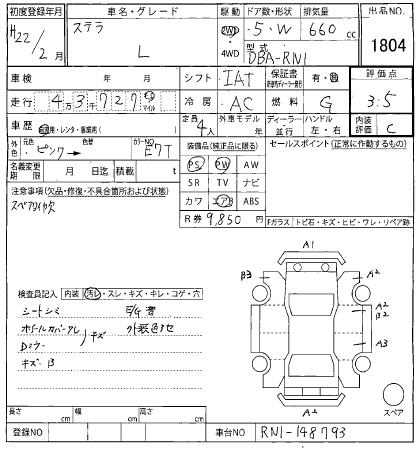 初度登録年月 車名・グレード 駆動 ドア数・形状 排気量 出品NO.
H22/2月 ステラ L 2WD 4WD ・5・W 660cc 1804
型式 DBA-RN1
車検 年 月 シフト IAT 保証書 有・無 評価点
走行 4万3千727 マイル 冷房 AC 燃料 G 3.5
車歴 自家用・レンタ・事業用( ) 定員 4人 外車モデル 年 ディーラー・並行 ハンドル 左・右 内装評価 C
外色 元色 ピンク → 色替 カラーNO E7T 装備品(純正品に限る) セールスポイント(正常に動作するもの)
名義変更期限 月 日迄 積載 t PS PW AW
注意事項(欠品・修復・不具合箇所および状態) SR TV ナビ
スペアタイヤ欠 カワ エアB ABS
R券 9,850円 Fガラス(トビ石・キズ・ヒビ・ワレ・リペア跡)
A1
B3 A2
検査員記入 内装 汚れ・スレ・キズ・キレ・コゲ・穴
シートシミ
ホイールカバーアレ キズ 外装色アセ
Dミラー
キズ B
A2
B2
A3
A2
スペア
長さ cm 幅 cm 高さ cm
登録NO 車台NO RN1-148793